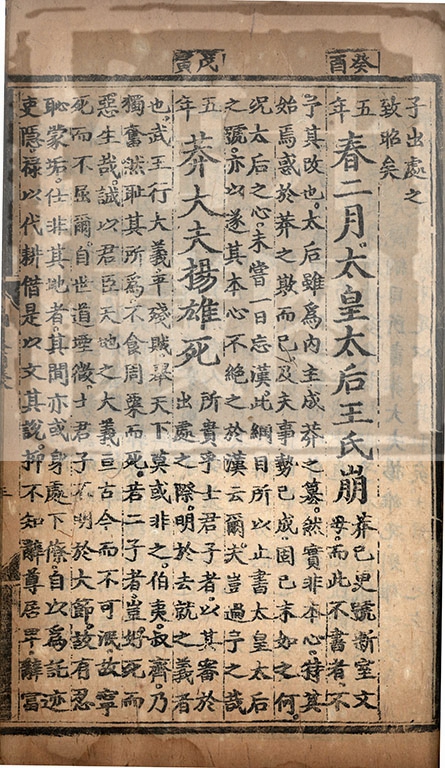 癸酉
戊寅
子出處之
致昭矣
五年
春二月太皇太后王氏崩
莽已更號新室文
母而此不書者不
予其改也太后雖為內主成莽之篡然實非本心特其
始焉惑於莽之欺而已及夫事勢已成固已末如之何
況太后之心未嘗一日忘漢此綱目所以止書太皇太后
之號亦以遂其本心不絕之於漢云爾夫豈過予之哉
五年
莽大夫揚雄死
所貴乎士君子者以其審於
出處之際明於去就之義者
也武王行大義平殘賊舉天下莫或非之伯夷叔齊乃
獨奮然恥其所為不食周粟而死若二子者豈好死而
惡生哉誠以君臣天地之大義亘古今而不可泯故寧
死而不屈爾自世道堙微士君子不明於大節故有忍
恥蒙垢仕非其地者其間亦或身處下僚自以為託迹
吏隱祿以代耕借是以文其說抑不知辭尊居卑辭富